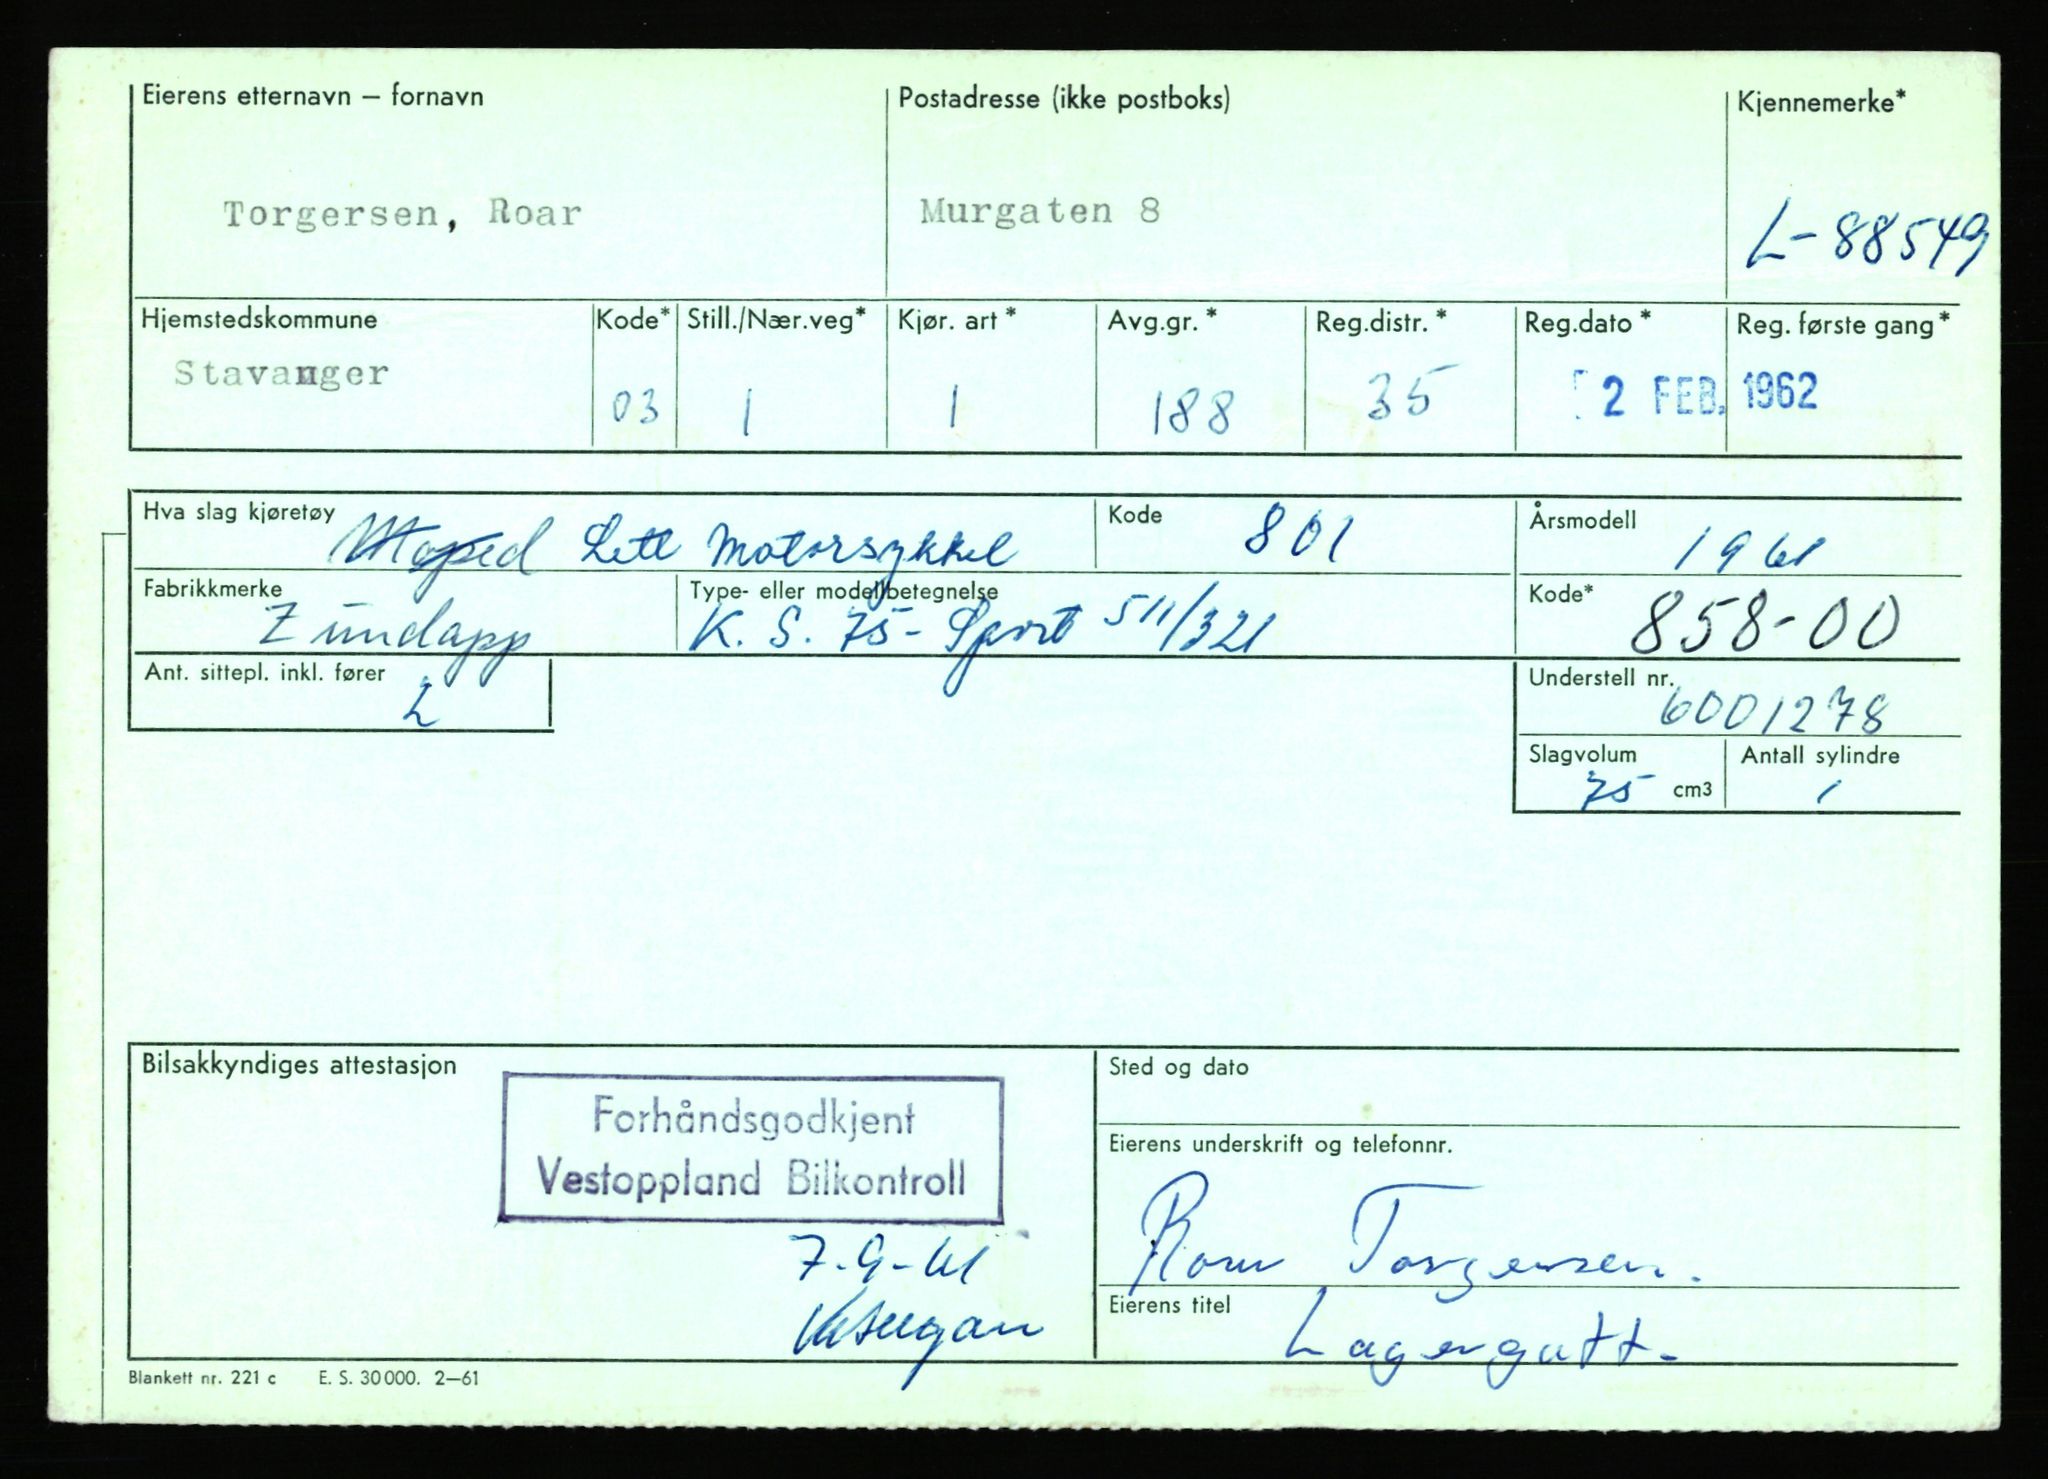 Eierens etternavn – fornavn
Postadresse (ikke postboks)
Kjennemerke*
Torgersen, Roar
Murgaten 8
L-88549
Hjemstedskommune
Kode*
Still./Nær.veg*
Kjør. art *
Avg.gr. *
Reg.distr. *
Reg.dato *
Reg. første gang*
Stavanger
03
1
1
188
35
2 FEB. 1962
Hva slag kjøretøy
Moped Lett Motorsykkel
Kode
801
Årsmodell
1961
Fabrikkmerke
Zündapp
Type- eller modellbetegnelse
K. S. 75 - Sport 511/321
Kode*
858-00
Ant. sittepl. inkl. fører
2
Understell nr.
6001278
Slagvolum
75 cm3
Antall sylindre
1
Bilsakkyndiges attestasjon
Forhåndsgodkjent
Vestoppland Bilkontroll
7-9-61
Sted og dato
Eierens underskrift og telefonnr.
Roar Torgersen.
Eierens titel
Lagergutt.
Blankett nr. 221 c E. S. 30 000. 2–61